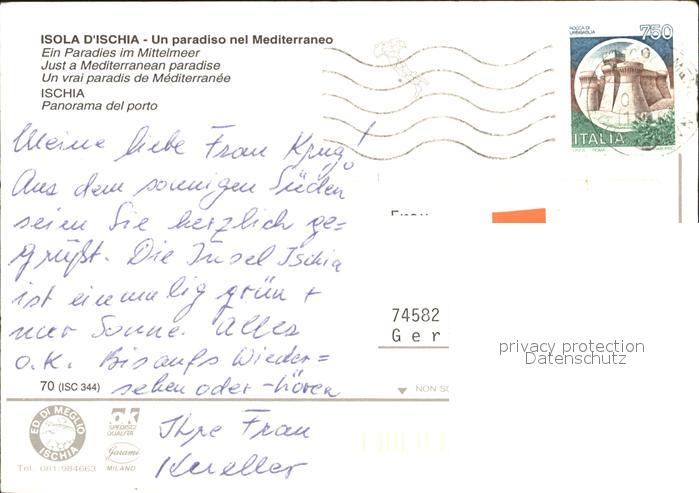 ISOLA D'ISCHIA - Un paradiso nel Mediterraneo
Ein Paradies im Mittelmeer
Just a Mediterranean paradise
Un vrai paradis de Méditerranée
ISCHIA
Panorama del porto
ROCCA DI
URBISAGLIA
750
ITALIA
Meine liebe Frau Krug!
Aus dem sonnigen Süden
seien Sie herzlich ge=
grüßt. Die Insel Ischia
ist einmalig grün +
nur Sonne. Alles
o.k. Bis aufs Wieder=
sehen oder -hören
Ihre Frau
Kneller
Frau
74582
Ger
privacy protection
Datenschutz
70 (ISC 344)
NON SC
ED. DI MEGLIO
ISCHIA
Tel. 081/984663
ok
SPEDISCI
QUALITÀ
Garami
MILANO